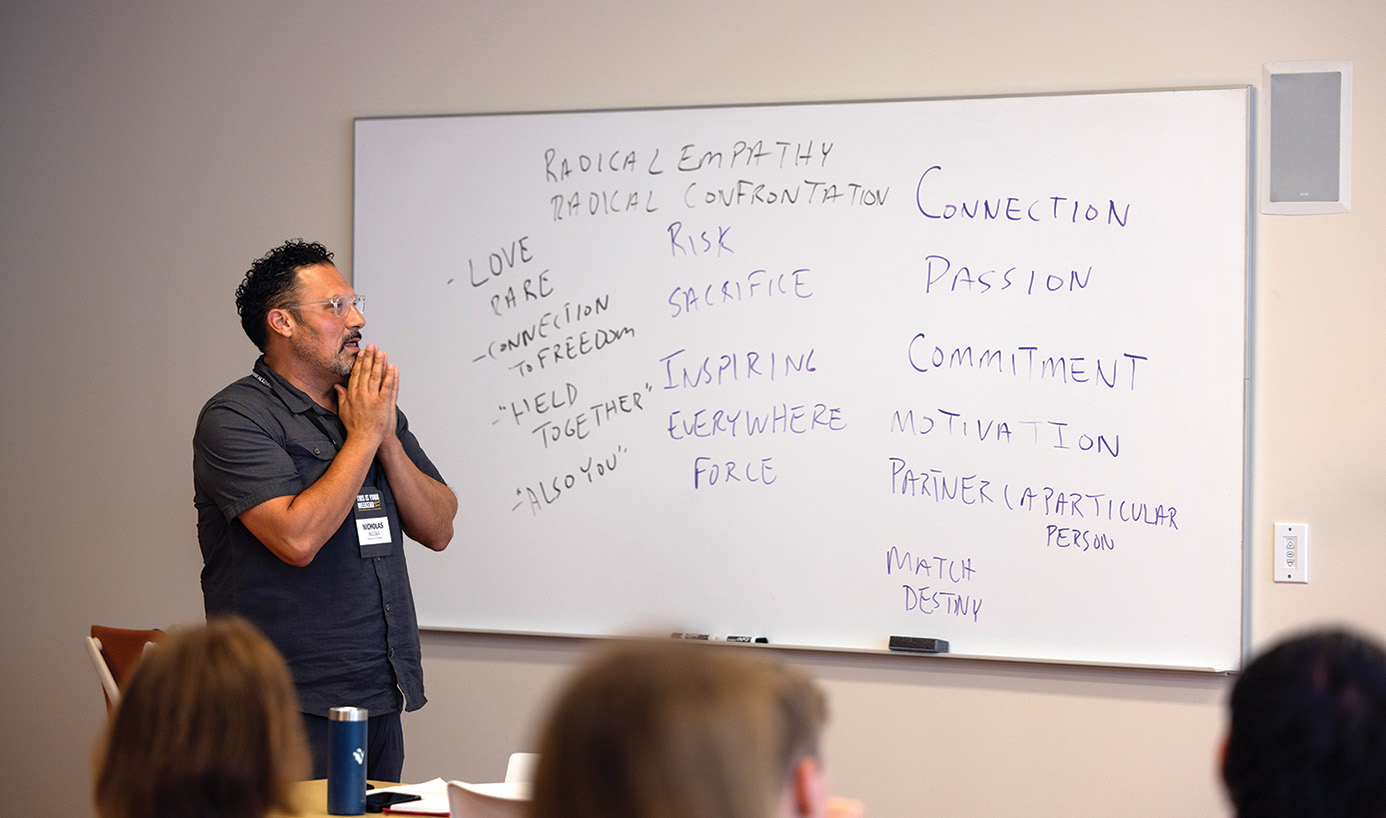 RADICAL EMPATHY
RADICAL CONFRONTATION
- LOVE
RARE
- CONNECTION
TO FREEDOM
- "HELD
TOGETHER"
- "ALSO YOU"
RISK
SACRIFICE
INSPIRING
EVERYWHERE
FORCE
CONNECTION
PASSION
COMMITMENT
MOTIVATION
PARTNER (A PARTICULAR
PERSON
MATCH
DESTINY
THIS IS YOUR
WEEKEND
NICHOLAS